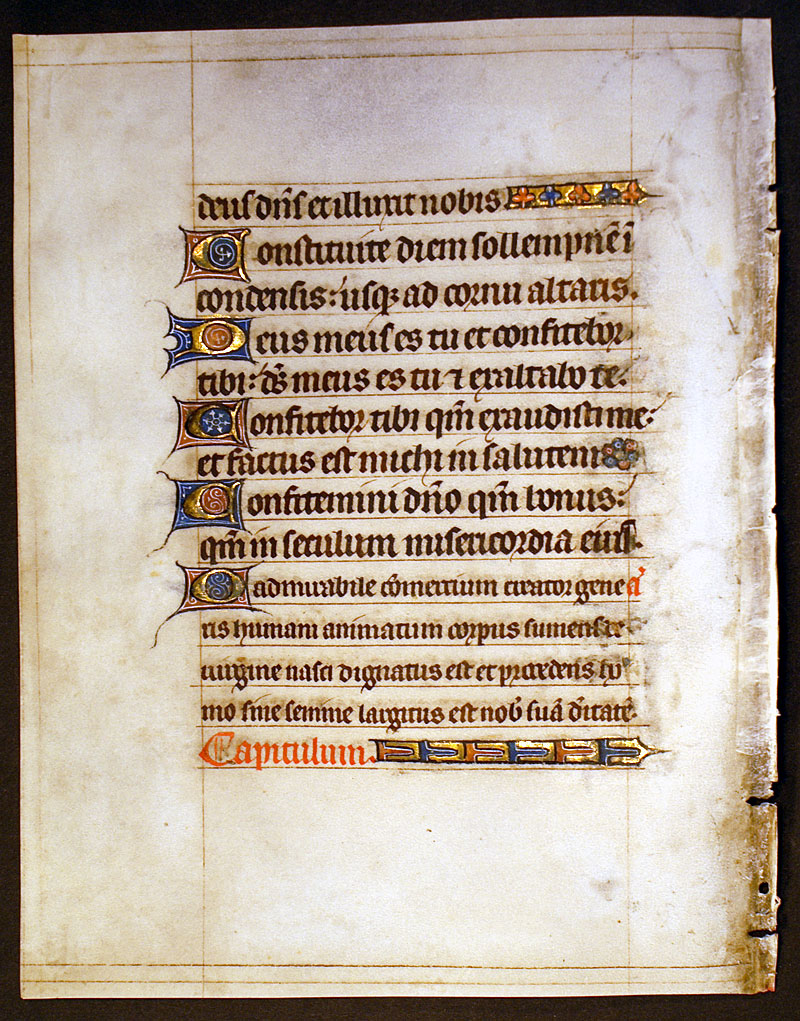 deus dn̄s et illuxit nobis
Constituite diem sollempnē ī
condensis: usq; ad cornu altaris.
Deus meus es tu et confitebor
tibi: ds̄ meus es tu ⁊ exaltabo te.
Confitebor tibi qm̄ exaudisti me:
et factus est michi in salutem
Confitemini dn̄o qm̄ bonus:
qm̄ in seculum misericordia eius.
O admirabile cōmercium creator gene a᷑
ris humani animatum corpus sumens de
uirgine nasci dignatus est et procedens ho
mo sine semine largitus est nob̄ suā d̄itatē.
Capitulum.